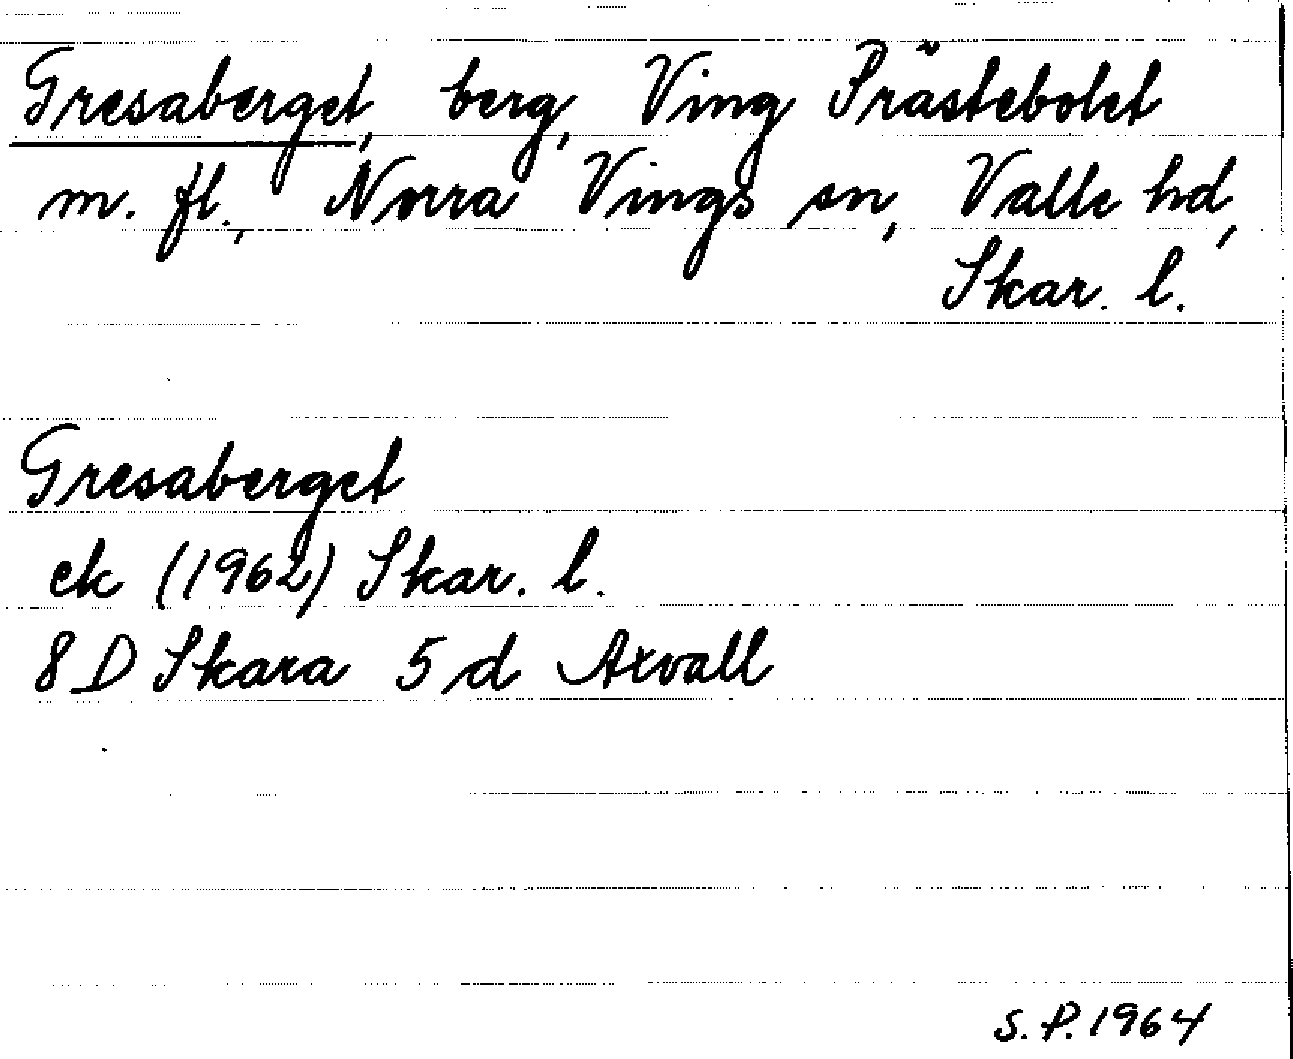 Gresaberget, berg, Ving Prästebolet
m. fl., Norra Vings sn, Valle hd,
Skar. l.
Gresaberget
ek (1962) Skar. l.
8 D Skara 5 d Axvall
S. P. 1964